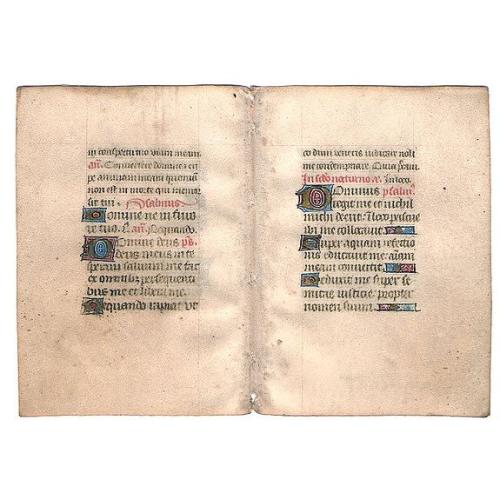 in conspectu tuo viam meam.
an. Convertere domine et eri
pe animam meam quoniam
non est in morte qui memor
sit tui. Psalmus
Domine ne in furo
re tuo. an. Nequando.
Domine deus ps.
deus meus in te
speravi salvum me fac
ex omnibus persequenti
bus me et libera me.
Nequando rapiat ut
eo dum veneris iudicare noli
me condempnare. Quia
In nocturno an. In loco.
Dominus psalm
regit me et nichil
michi deerit in loco pascue
ibi me collocavit
Super aquam refectio
nis educavit me aiam
meam convertit
Deduxit me super se
mitas iusticie propter
nomen suum